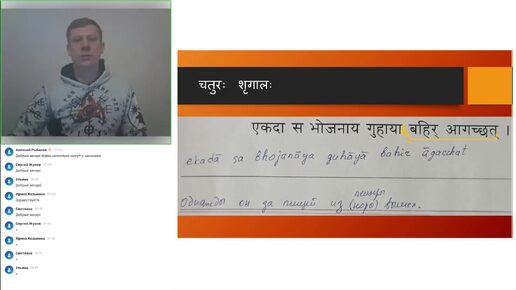 चतुरः शृगालः
एकदा स भोजनाय गुहाया बहिर् आगच्छत् ।
ekadā sa bhojanāya guhāyā bahir āgacchat
пещеры
Однажды он за пищей из (норы) вышел.
Алексей Рыбаков
Сергей Жуков
Добрый вечер!
Ульяна
Добрый вечер)
Ирина Козьмина
Здравствуйте
Светлана
Добрый вечер!
Сергей Жуков
+
Ирина Козьмина
+
Светлана
+
Ульяна
+